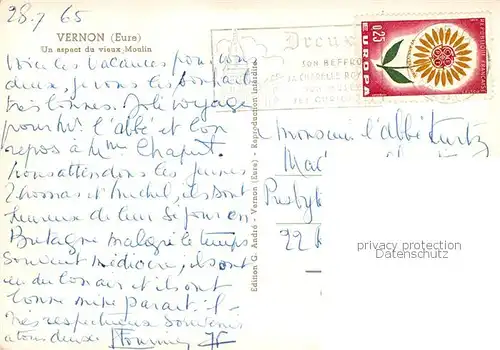 28-7 65
VERNON (Eure)
Un aspect du vieux Moulin
Voici les vacances pour vous
deux, je vous les souhaite
très bonnes. Joli voyage
pour Mr l'abbé et bon
repos à Mme Chaput.
nous attendons les jeunes
Thomas et Michel, ils sont
heureux de leur séjour en
Bretagne malgré le temps
souvent médiocre, ils ont
eu du bon air et ils ont
bonne mine paraît-il-
très respectueux souvenirs
à tous deux
Edition G. André - Vernon (Eure) - Reproduction Interdite.
Dreux
SON BEFFROI
CHAPELLE ROY
REPUBLIQUE FRANÇAISE
POSTES
0,25
EUROPA
Monsieur l'abbé Kurtz
Presbyt
22
privacy protection
Datenschutz